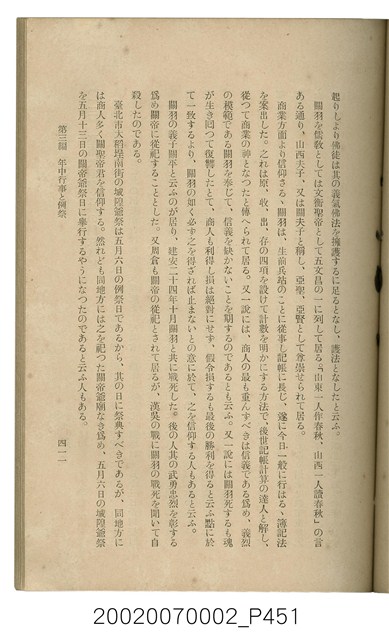 起りしより佛徒は其の義氣佛法を擁護するに足るとなし、護法となしたと云ふ。
關羽を儒敎としては文衡聖帝として五文昌の一に列して居る。「山東一人作春秋、山西一人讀春秋」の言
ある通り、山西夫子、又は關夫子と稱し、亞聖、亞賢として尊崇せられて居る。
商業方面より信仰さるゝ關羽は、生前兵站のことに從事し記帳に長じ、遂に今日一般に行はるゝ簿記法
を案出した。之れは原、收、出、存の四項を設けて計數を明かにする方法で、後世記帳計算の達人と解し、
從つて商業の神となつたと傳へられて居る。又一說には、商人の最も重んずべきは信義である爲め、義烈
の模範である關羽を奉じて、信義を缺かないことを期するのであるとも云ふ。又一說には關羽死するも魂
が生き囘つて復讐したとて、商人も利得し損は絕對にせず、假令損するも最後の勝利を得ると云ふ點に於
て一致するより、關羽の如く必ず之を得ざれば止まないとの意に於て、之を信仰する人もあると云ふ。
關羽の義子關平と云ふのが居り、建安二十四年十月關羽と共に戰死した。後の人其の武勇忠烈を彰する
爲め關帝に從祀することとした。又周倉も關帝の從祀とされて居るが、漢吳の戰に關羽の戰死を聞いて自
殺したのである。
臺北市大稻埕南街の城隍爺祭は五月六日の例祭日であるから、其の日に祭典すべきであるが、同地方に
は商人多く關聖帝君を信仰する。然れども同地方には之を祀つた關帝爺廟なき爲め、五月六日の城隍爺祭
を五月十三日の關帝爺祭日に擧行するやうになつたのであると云ふ人もある。
第三編 年中行事と例祭
四一一
20020070002_P451